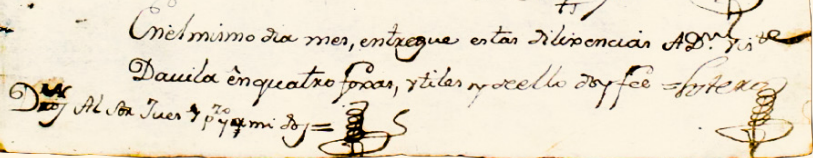 En el mismo dia mes, entregue estas dilixencias A Dn Viste
Davila en quatro foxas, vtiles y de ello doy fee =
Al Sor Juez y por mi doy =